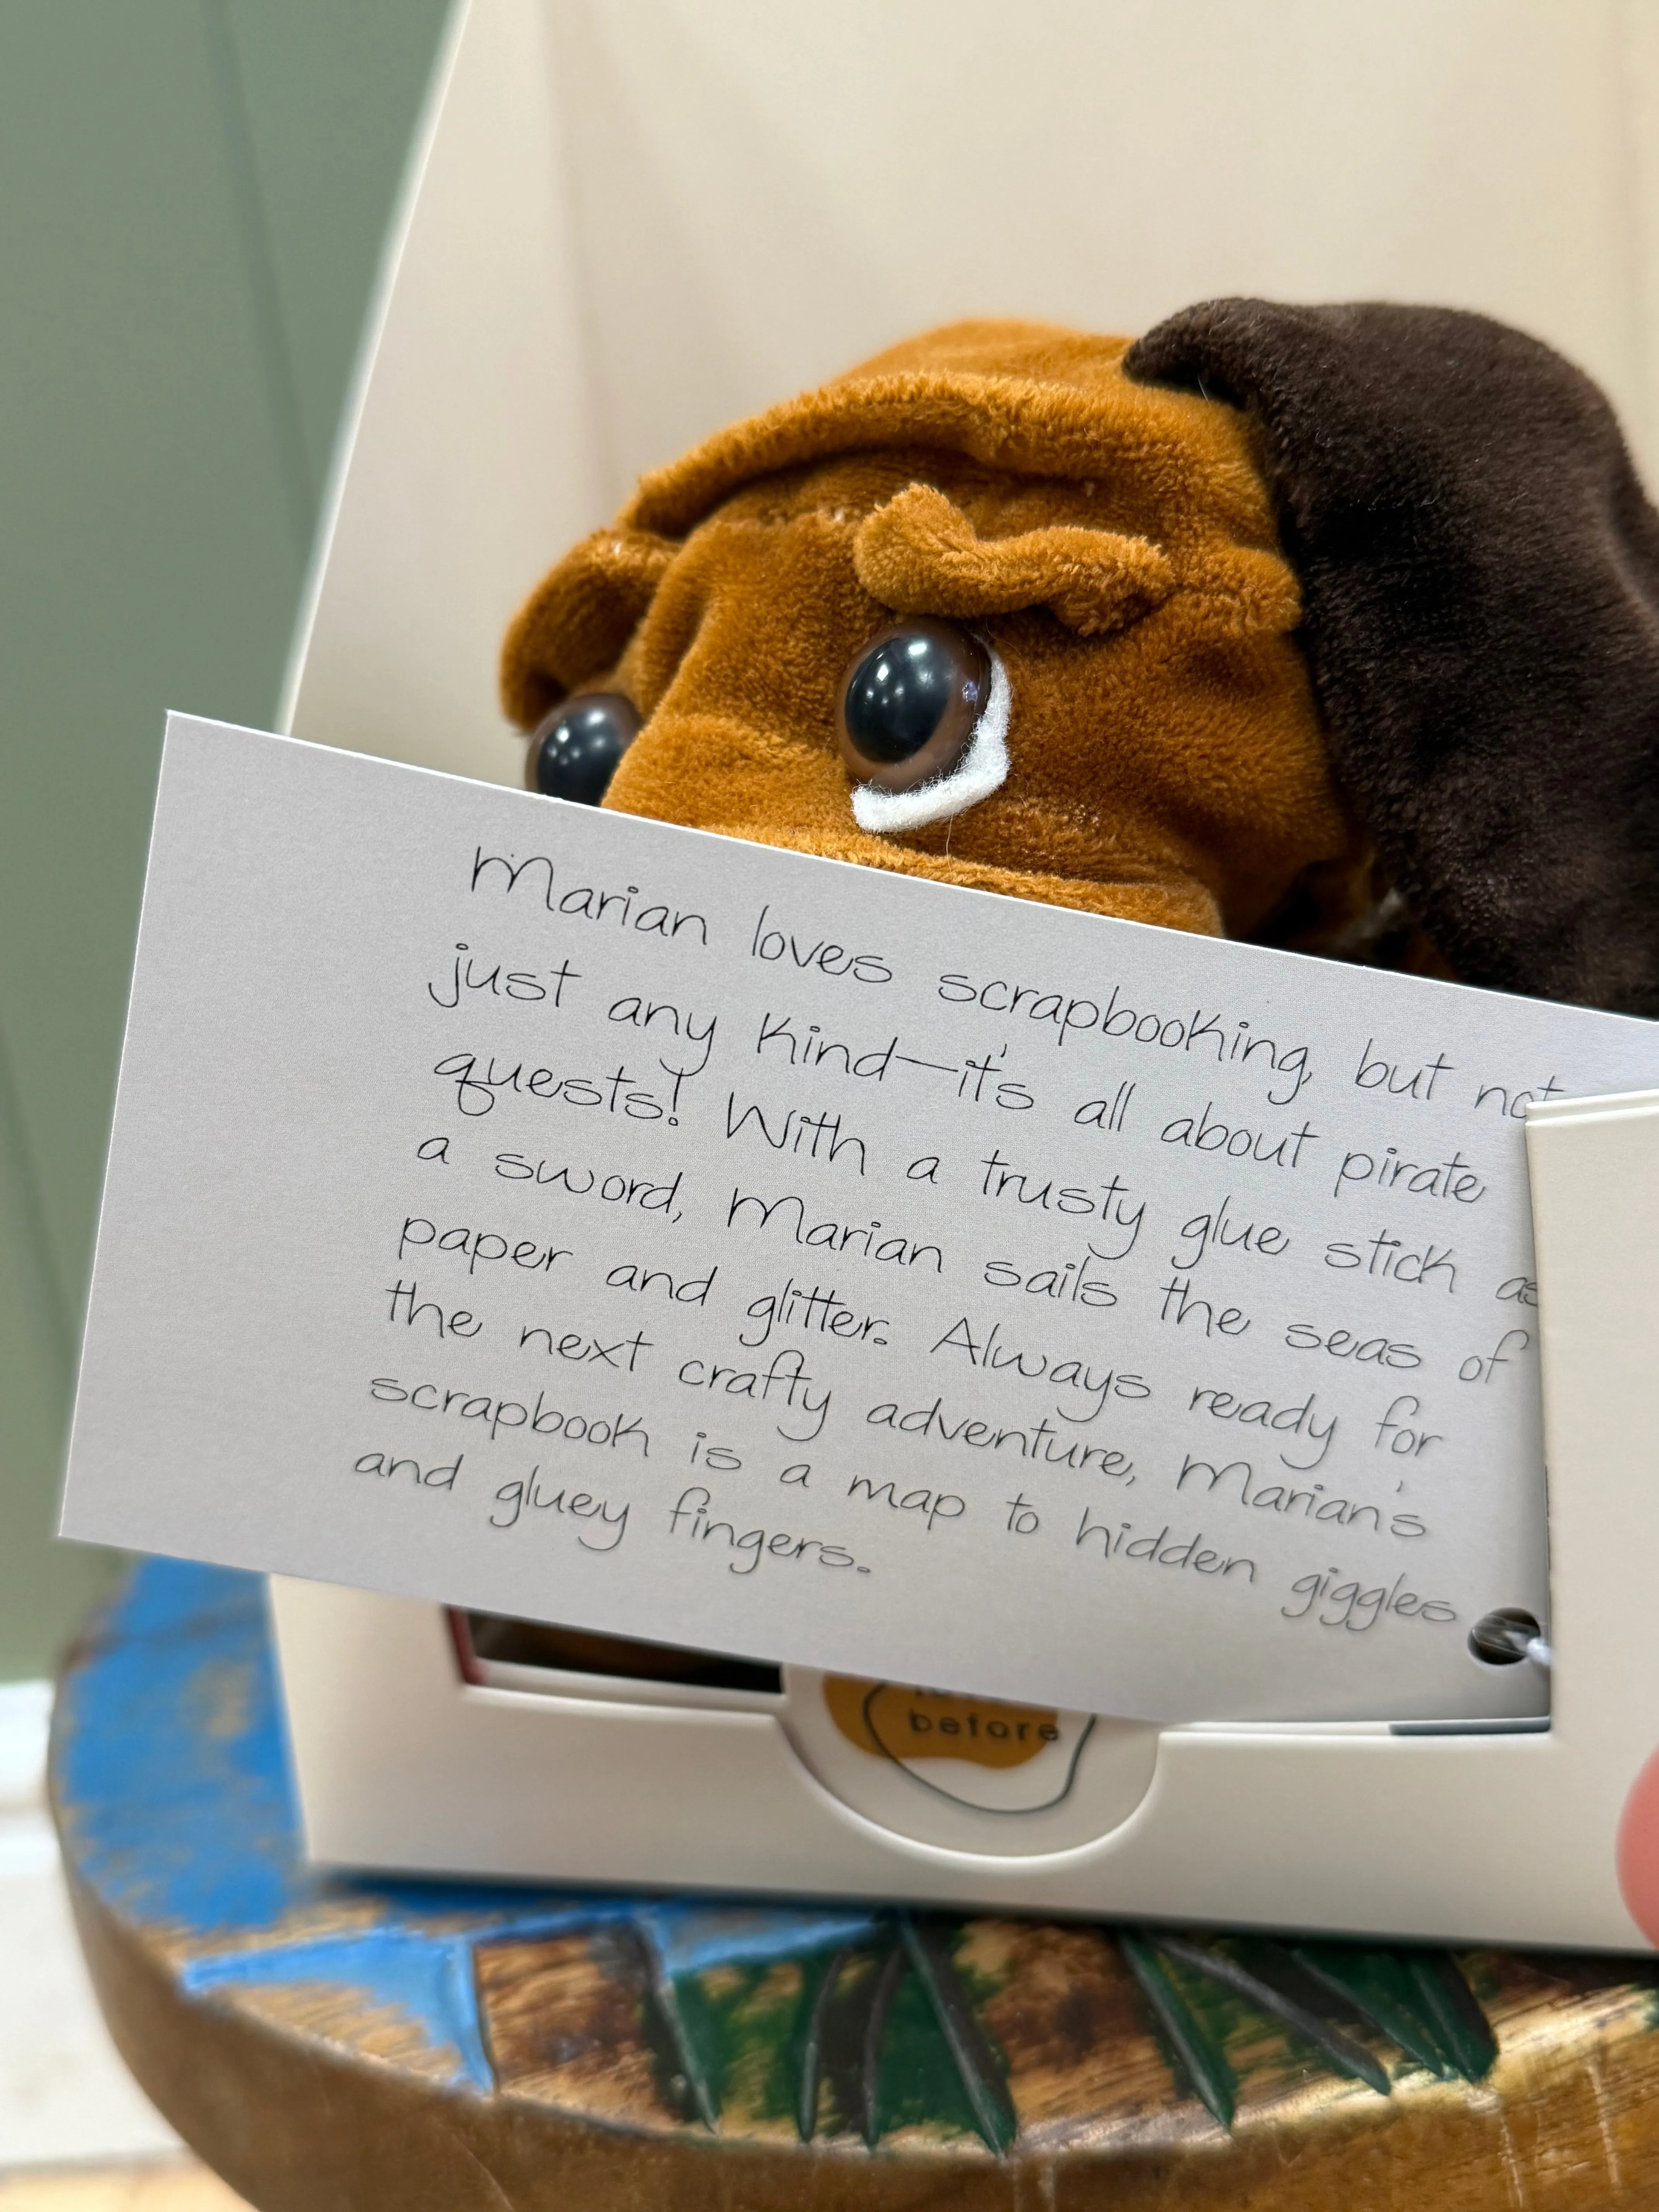 Marian loves scrapbooking, but not
just any kind—it's all about pirate
quests! With a trusty glue stick as
a sword, Marian sails the seas of
paper and glitter. Always ready for
the next crafty adventure, Marian's
scrapbook is a map to hidden giggles
and gluey fingers.
before